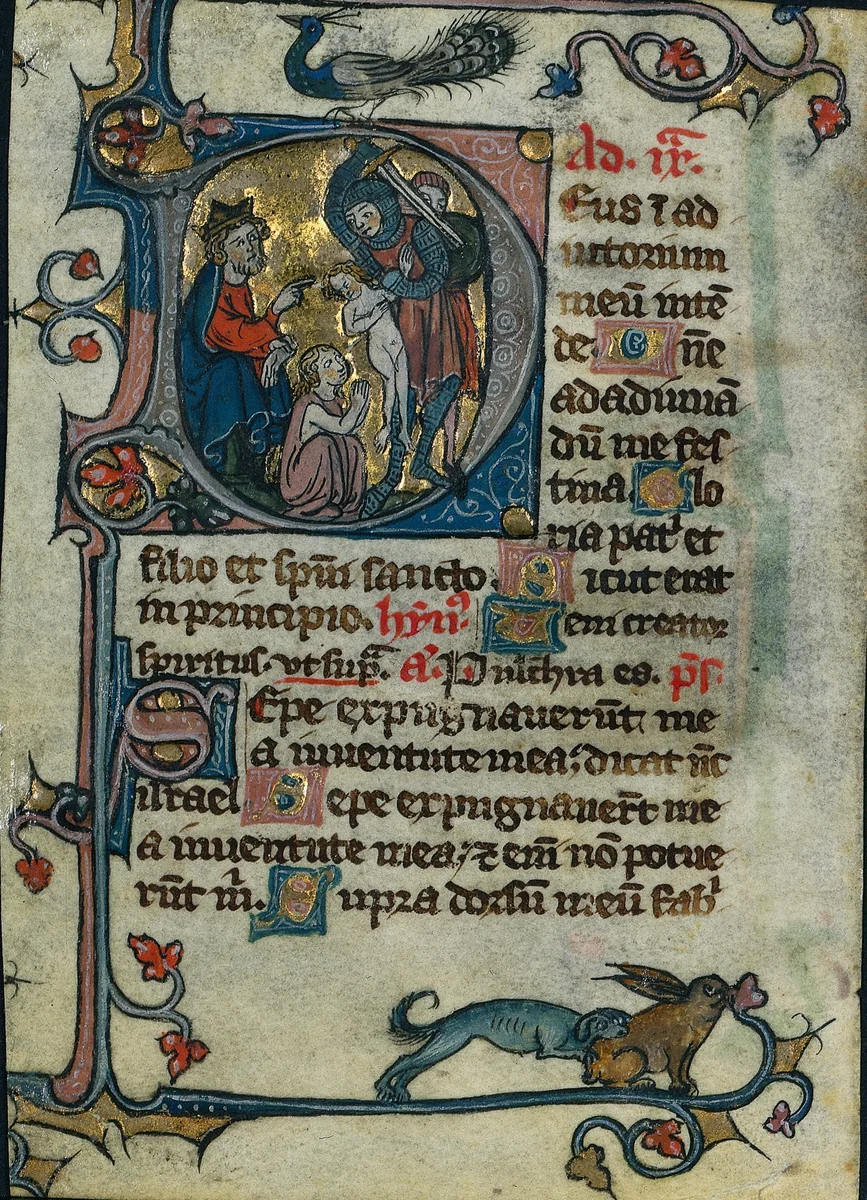 Ad. ix.
Eus ī ad
iutorium
meū intē
de. D ñe
ad adiuuā
dū me fes
tina. Glo
ria patᷣ et
filio et spūi sancto. Sicut erat
in principio. hỹnꝰ Ueni creator
spiritus. vt supᷓ. Aᷓ. Pulchra es. p̄s.
SEpe expugnauerūt me
a iuuentute mea; dicat nūc
israel Sepe expugnauer̄t me
a iuuentute mea; ⁊ eni᷑ nō potue
rūt m̄. Supra dorsū meū fabᷣ